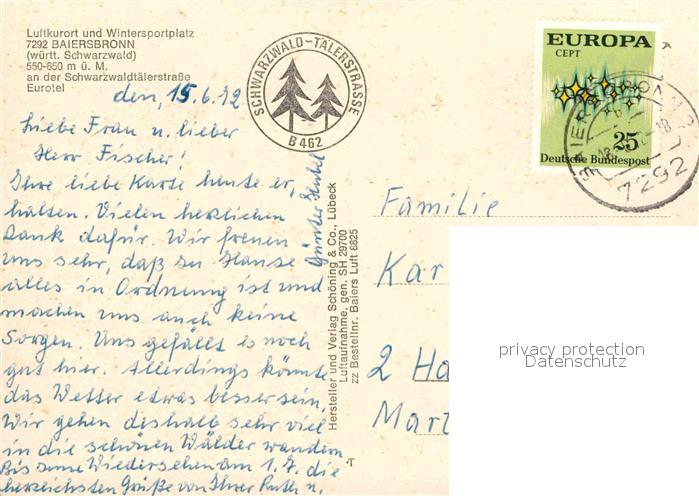 Luftkurort und Wintersportplatz
7292 BAIERSBRONN
(württ. Schwarzwald)
550-650 m ü. M.
an der Schwarzwaldtälerstraße
Eurotel
SCHWARZWALD-TÄLERSTRASSE
B 462
EUROPA
CEPT
25
Deutsche Bundespost
7292
den, 15.6.72
Liebe Frau u. lieber
Herr Fischer!
Ihre liebe Karte heute er,
halten. Vielen herzlichen
Dank dafür. Wir freuen
uns sehr, daß zu Hause
alles in Ordnung ist und
machen uns auch keine
Sorgen. Uns gefällt es noch
gut hier. Allerdings könnte
das Wetter etwas besser sein.
Wir gehen deshalb sehr viel
in die schönen Wälder wandern
Bis zum Wiedersehen am 1.7. die
herzlichsten Grüße von Ihrer Ruth u.
Günter
Hersteller und Verlag Schöning & Co., Lübeck
Luftaufnahme, gen. SH 29700
zz Bestellnr. Baiers Luft 6825
Familie
Kar
2 Ha
Mart
privacy protection
Datenschutz